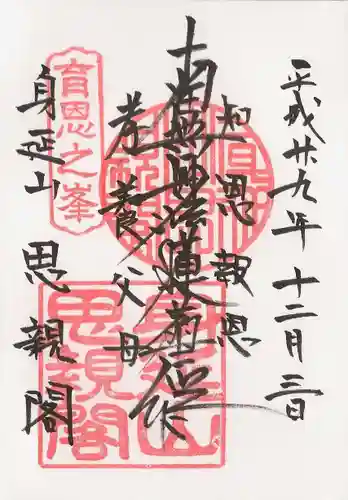 平成廿九年十二月三日
知恩報恩
南無妙法蓮華経
孝養父母
育恩之峯
身延山
思親閣
身延山
思親閣